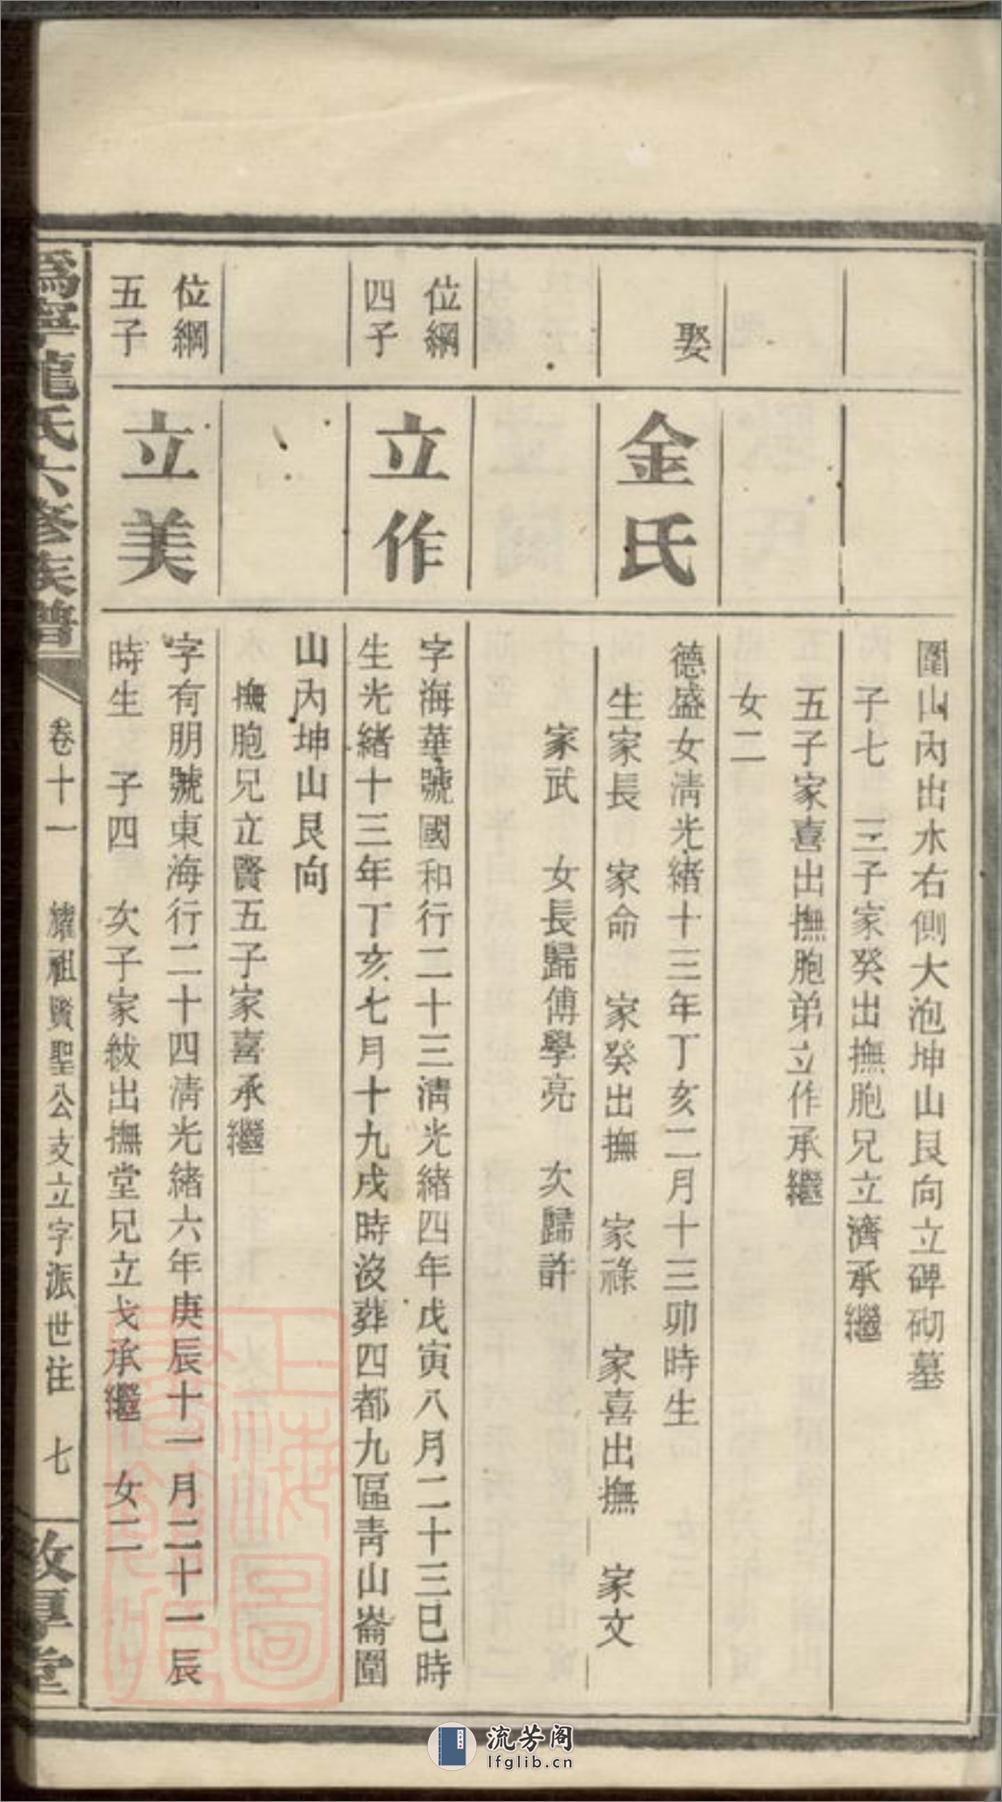 圍山內出水右側大泡坤山艮向立碑砌墓
子七　三子家癸出撫胞兄立濟承繼
五子家喜出撫胞弟立作承繼
女二
娶
金氏
德盛女清光緒十三年丁亥二月十三卯時生
生家長　家命　家癸出撫　家祿　家喜出撫　家文
家武　女長歸傅學亮　次歸許
位綱
四子
立作
字海華號國和行二十三清光緒四年戊寅八月二十三巳時
生光緒十三年丁亥七月十九戌時沒葬四都九區青山崙圍
山內坤山艮向
撫胞兄立賢五子家喜承繼
位綱
五子
立美
字有朋號東海行二十四清光緒六年庚辰十一月二十一辰
時生　子四　次子家紱出撫堂兄立戈承繼　女二
為寧龍氏六修族譜
卷十一　耀祖賢聖公支立字派世注　七
敦厚堂
上海圖書館藏
流芳阁
lfglib.cn